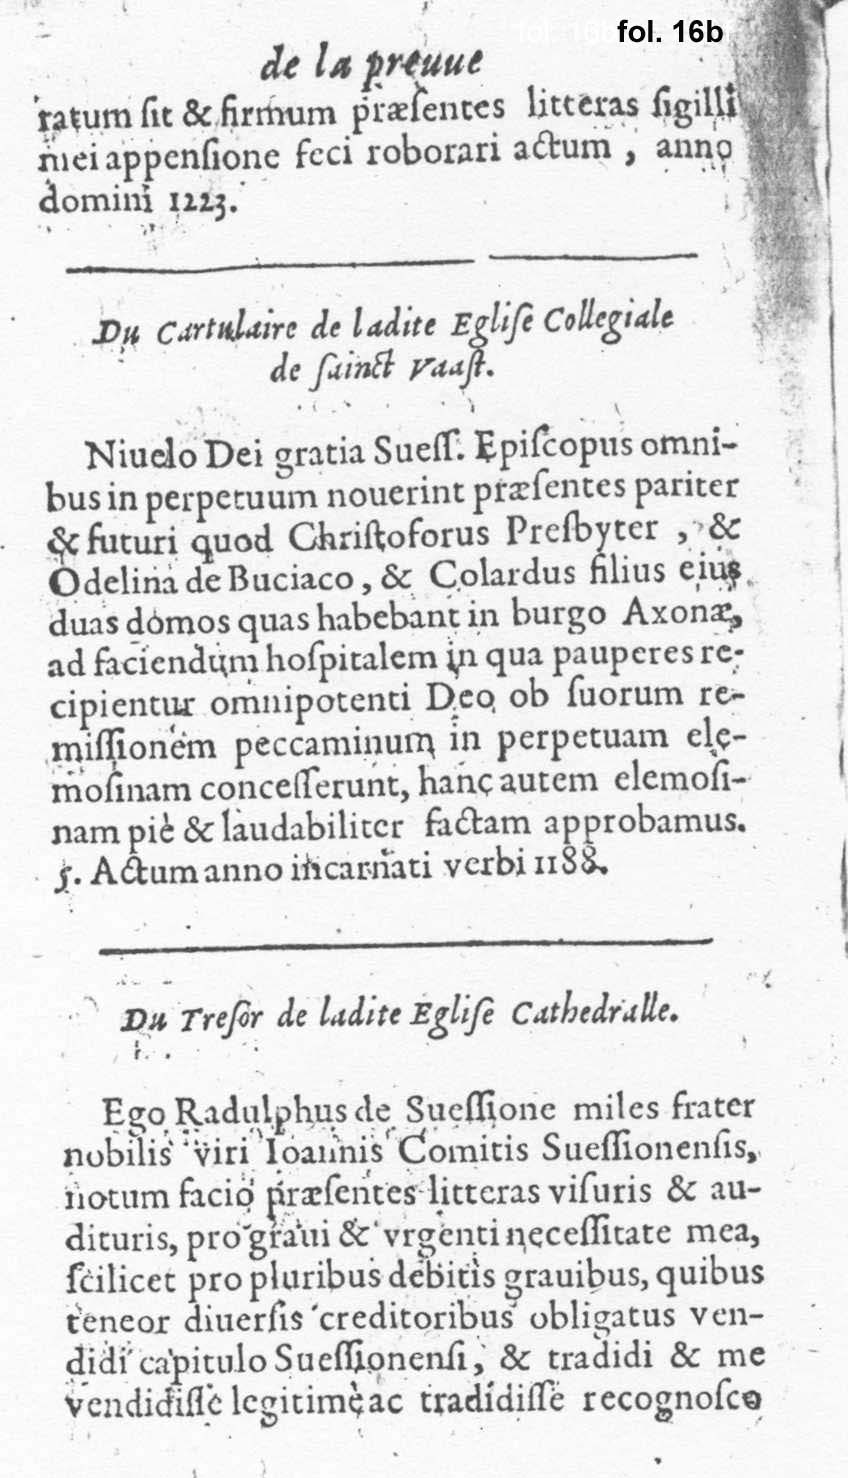 fol. 16b
de la preuue
ratum ſit & firmum præſentes litteras ſigilli
mei appenſione feci roborari actum , anno
domini 1223.
Du Cartulaire de ladite Egliſe Collegiale
de ſainct Vaaſt.
Niuelo Dei gratia Sueſſ. Epiſcopus omni-
bus in perpetuum nouerint præſentes pariter
& futuri quod Chriſtoforus Preſbyter , &
Odelina de Buciaco , & Colardus filius eius
duas domos quas habebant in burgo Axonæ,
ad faciendum hoſpitalem in qua pauperes re-
cipientur omnipotenti Deo ob ſuorum re-
miſſionem peccaminum in perpetuam ele-
moſinam conceſſerunt, hanc autem elemoſi-
nam piè & laudabiliter factam approbamus.
ſ. Actum anno incarnati verbi 1188.
Du Treſor de ladite Egliſe Cathedralle.
Ego Radulphus de Sueſſione miles frater
nobilis viri Ioannis Comitis Sueſſionenſis,
notum facio præſentes litteras viſuris & au-
dituris, pro graui & vrgenti neceſſitate mea,
ſcilicet pro pluribus debitis grauibus, quibus
teneor diuerſis creditoribus obligatus ven-
didi capitulo Sueſſionenſi, & tradidi & me
vendidiſſe legitimè ac tradidiſſe recognoſco